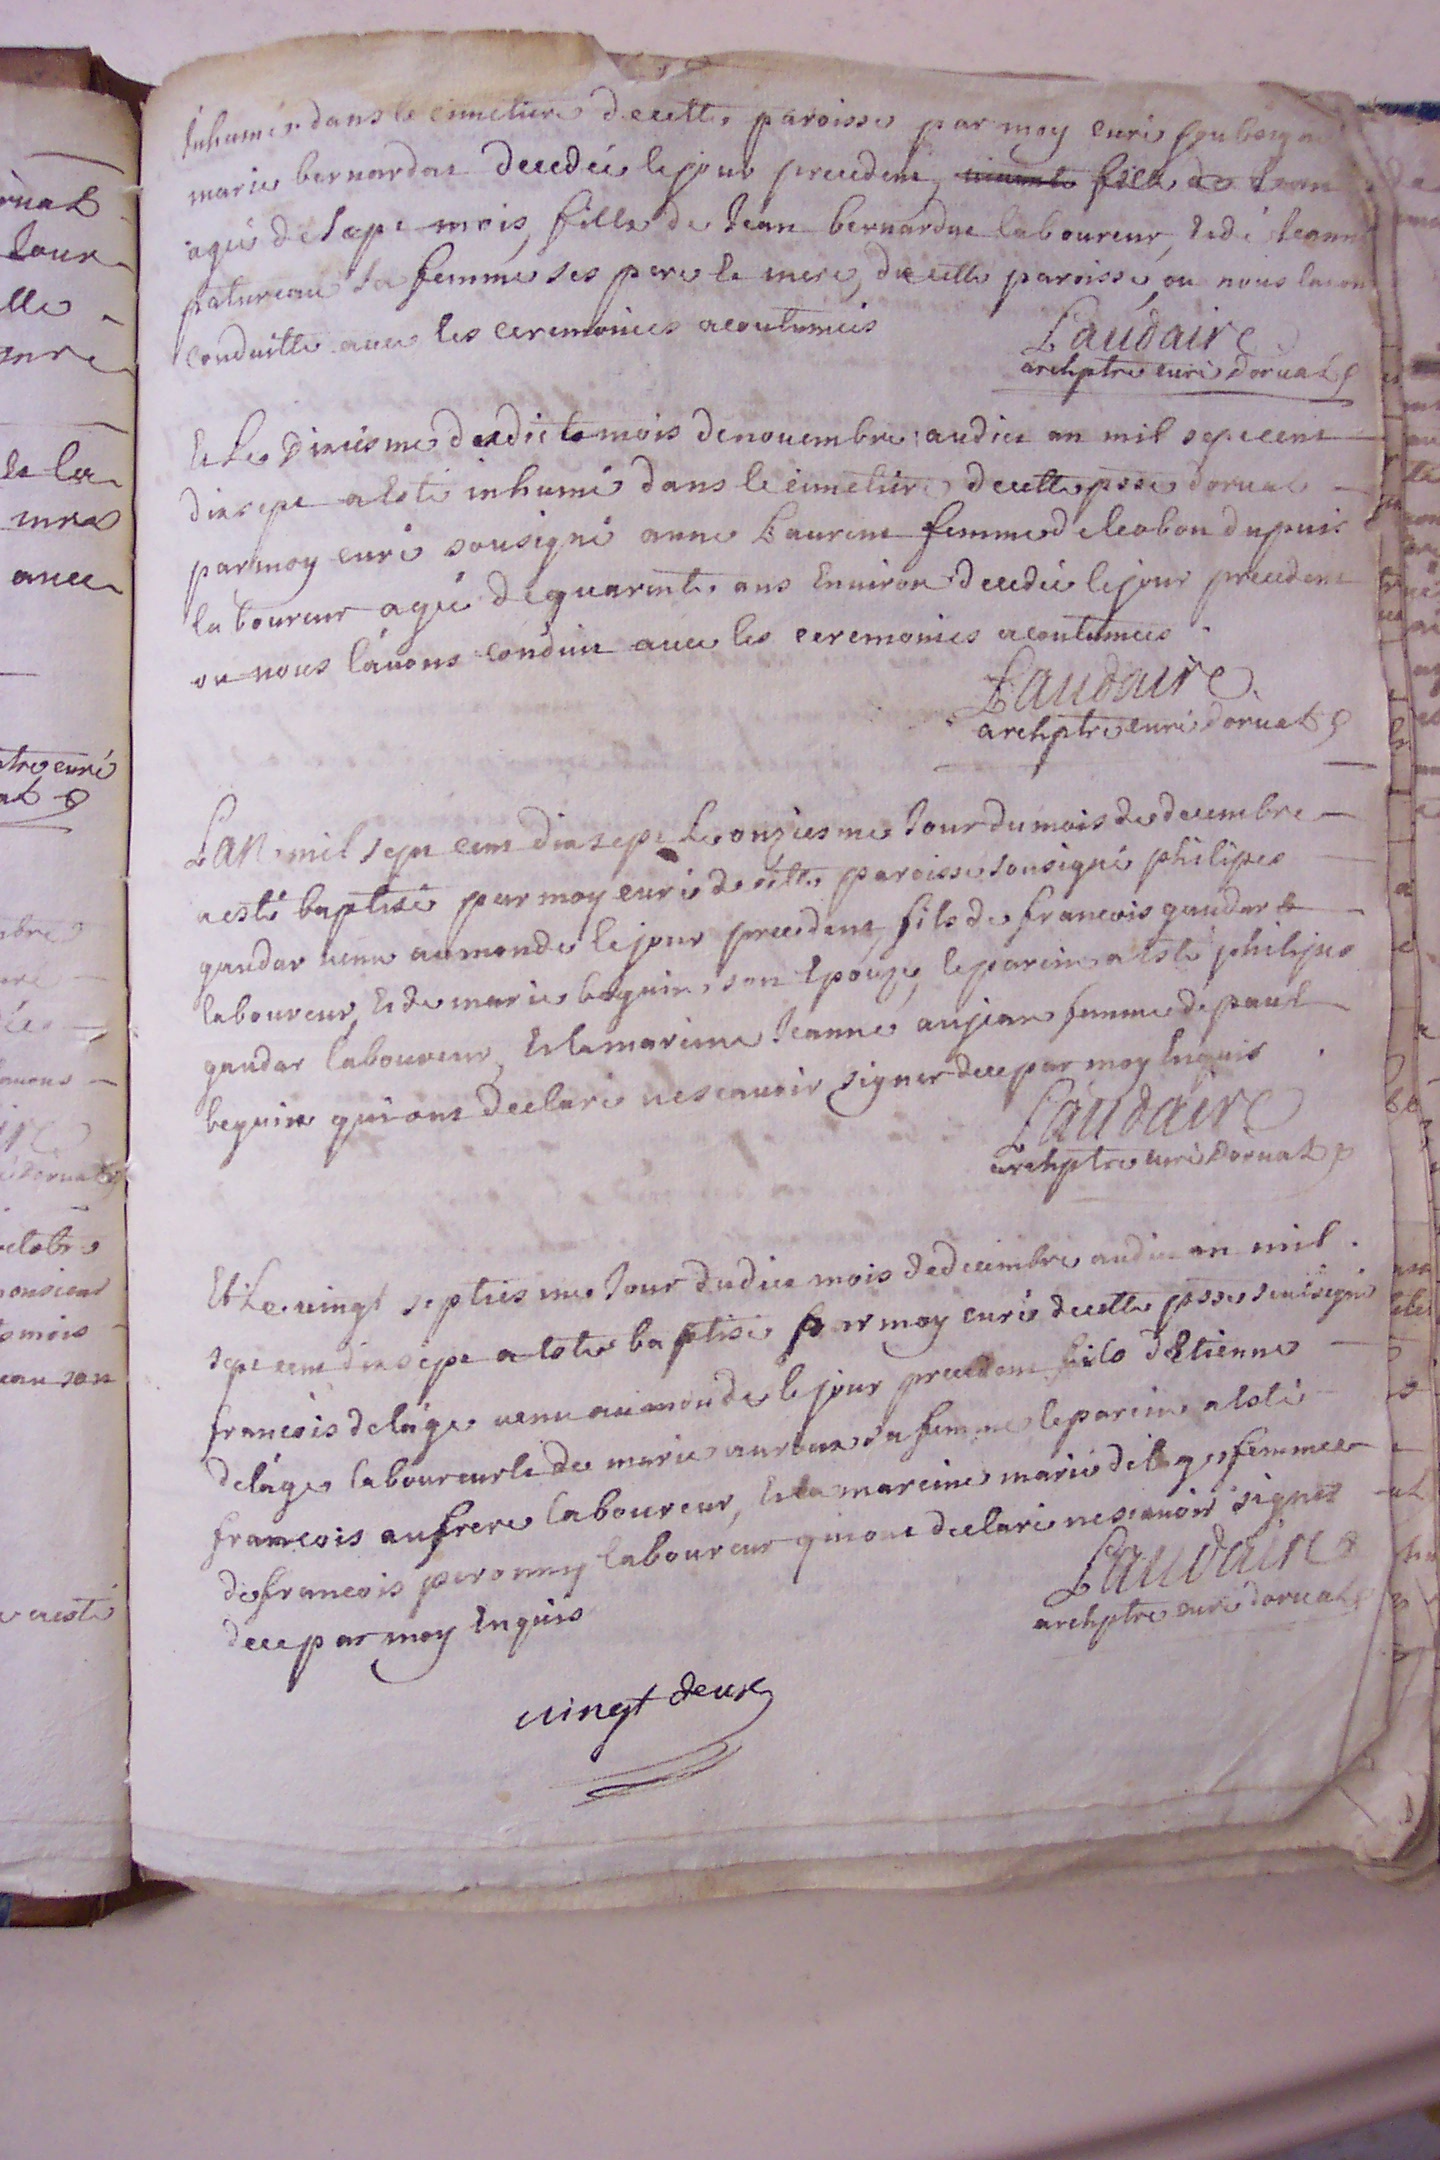 Inhumée dans le cimetiere de cette paroisse par moy curé
marie bernardat decedée le jour precedent, fille de Jean
agée de sept mois, fille de Jean bernardat laboureur, et de Jeanne
patureau sa femme ses pere et mere, de cette paroisse, ou nous lavons
conduitte avec les ceremonies acoutumées
Laudaire
archptre curé dorval
Et le dixiesme dudict mois de novembre audict an mil sept cent
dix sept a esté inhumé dans le cimetiere de cette psse dorval
par moy curé sousigné anne Laurent femme de leobon dupuis
laboureur agée de quarente ans Environ decedée le jour precedent
ou nous lavons conduit avec les ceremonies acoutumées.
Laudaire
archptre curé dorval
Lan mil sept cent dix sept Le onziesme Jour du mois de decembre
a esté baptisé par moy curé de cette paroisse sousigné philipes
gaudar venu au monde le jour precedent, fils de francois gaudar
laboureur, et de marie beguin son Epouze, le parein a esté philipes
gaudar laboureur, Et la mareine Jeanne aujean femme de paul
beguin qui ont declaré ne scavoir signer de ce par moy Enquis
Laudaire
archptre curé dorval
Et Le vingt septiesme Jour dudict mois de decembre audict an mil
sept cent dix sept a esté baptisé par moy curé de cette psse sousigné
francois delage venu au monde le jour precedent fils dEtienne
delage laboureur et de marie sa femme le parein a esté
francois aufrere laboureur, Et la mareine marie delage femme
de francois peronny laboureur qui ont declaré ne scavoir signer
de ce par moy Enquis
Laudaire
archptre curé dorval
vingt deux